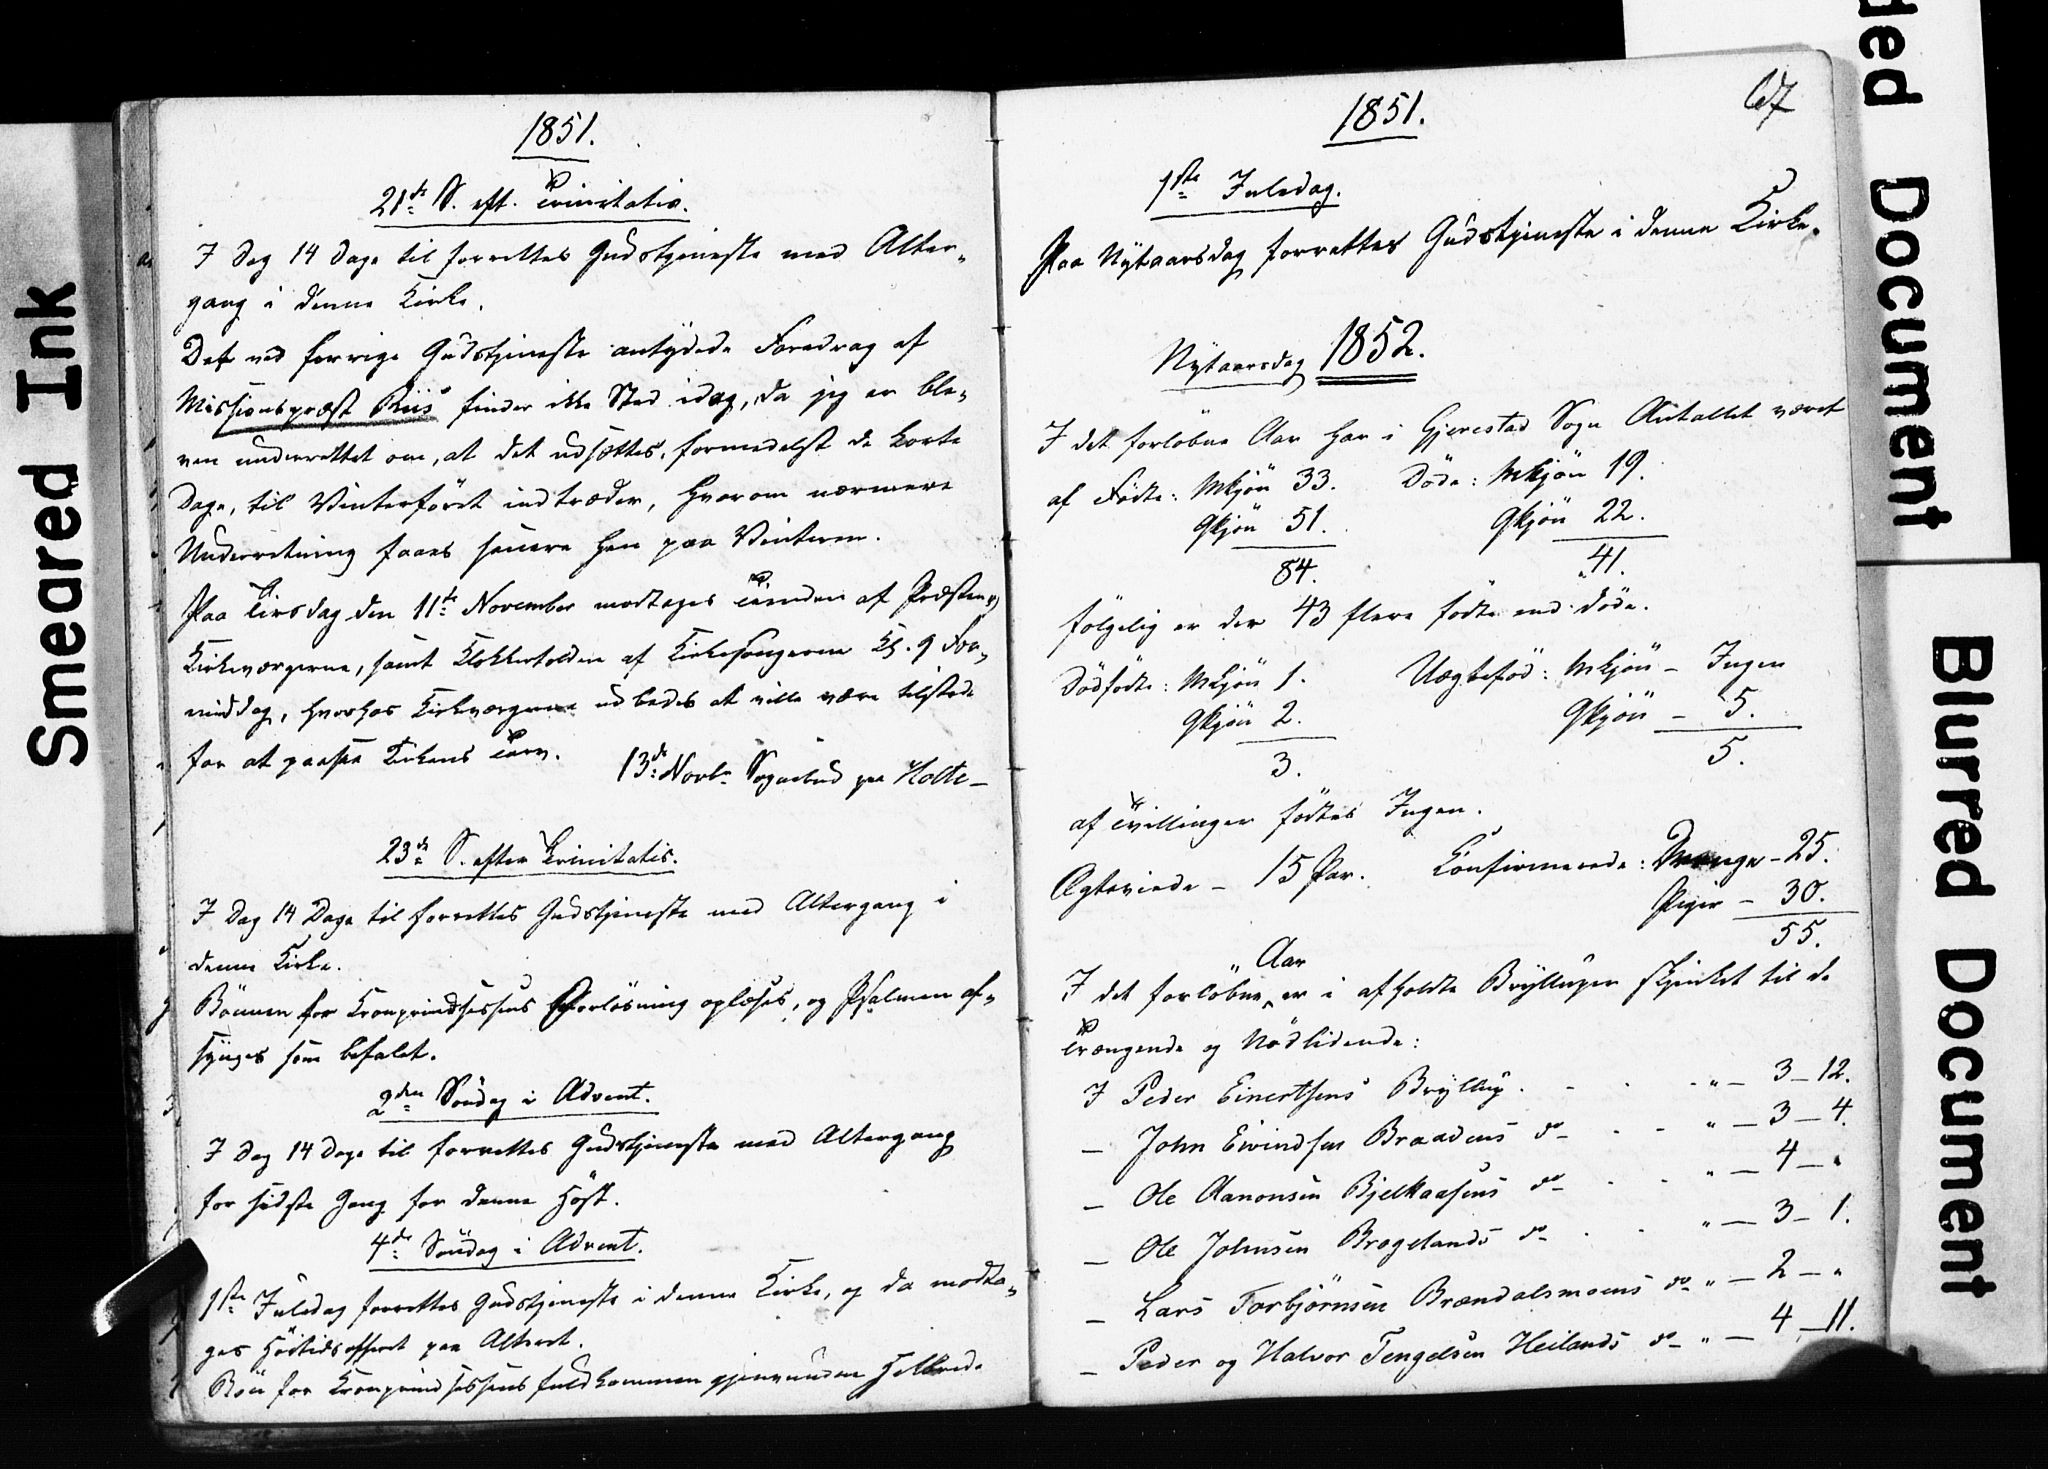 1851.
21de S. eft. Trinitatis.
I Dag 14 Dage til forrettes Gudstjeneste med Alter-
gang i denne Kirke.
Det ved forrige Gudstjeneste antydede Foredrag af
Missionspræst Riis finder ikke Sted idag, da jeg er ble-
ven underrettet om, at det udsættes, formedelst de korte
Dage, til Vinterföret indtræder, hvorom nærmere
Underretning faaes senere hen paa Vinteren.
Paa Tirsdag den 11te November modtages Tienden af Præsten og
Kirkeværgerne, samt Klokkertolden af Kirkesangerne Kl. 9 For-
middag, hvorhos Kirkeværgerne udbedes at ville være tilstede
for at paasee Kirkens Tarv.
13de Novbr Sognebud paa Holte –
23de S. efter Trinitatis.
I Dag 14 Dage til forrettes Gudstjeneste med Altergang i
denne Kirke.
Bönnen for Kronprindsessens Forlösning oplæses, og Psalmen af-
synges som befalet.
2den Söndag i Advent.
I Dag 14 Dage til forrettes Gudstjeneste med Altergang
for sidste Gang for denne Höst.
4de Söndag i Advent.
1ste Juledag forrettes Gudstjeneste i denne Kirke, og da modta-
ges Höitidsofferet paa Alteret.
Bön for Kronprindsessens fuldkommen gjenvundne Helbrede
1851.
67
1ste Juledag.
Paa Nytaarsdag forrettes Gudstjeneste i denne Kirke.
Nytaarsdag 1852.
I det forløbne Aar har i Gjerestad Sogn Antallet været
af Födte: Mkjön 33. Döde: Mkjön 19.
Qkjön 51. Qkjön 22.
84. 41.
fölgelig er der 43 flere födte end döde.
Dödfödte: Mkjön 1. Uægtefød: Mkjön – Ingen
Qkjön 2. Qkjön – 5.
3. 5.
af Tvillinger födtes Ingen.
Ægteviede – 15 Par. Konfirmerede: Drenge – 25.
Piger – 30.
55.
I det forløbne Aar er i afholdte Bryllupper skjenket til de
Trængende og Nödlidende:
I Peder Einertsens Bryllup . - . - „ – 3 – 12.
– John Eivindsen Braadens do – . - „ – 3 – 4.
– Ole Aanonsen Bjelkaasens do – . - „ – 4 – „
– Ole Johnsen Brogelands do – . - „ – 3 – 1.
– Lars Torbjörnsen Brændalsmoens do – „ – 2 – „
– Peder og Halvor Tengelsen Heilands do – „ – 4 – 11.
Smeared Ink
ded Document
Blurred Document